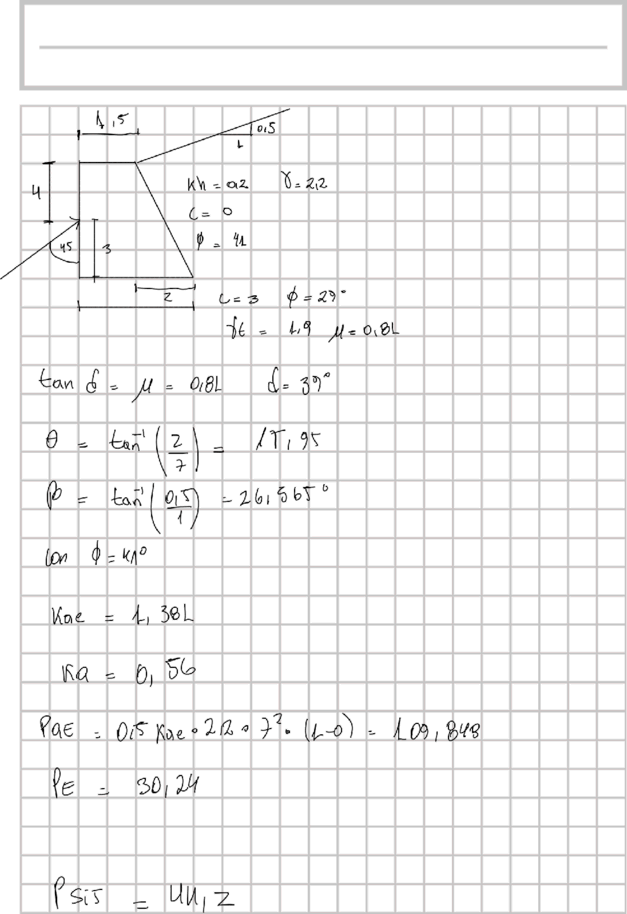 1,5
0,5
1
4
kh = 0,2 γ = 2,2
c = 0
φ = 41
45
3
2
c = 3 φ = 29°
γt = 1,9 μ = 0,81
tan δ = μ = 0,81 δ = 39°
θ = tan⁻¹ (2/7) = 15,95
β = tan⁻¹ (0,5/1) = 26,565°
con φ = 41°
Kae = 1,381
Ka = 0,56
PaE = 0,5 Kae • 2,2 • 7² • (1-0) = 109,848
PE = 30,24
Psis = 44,2